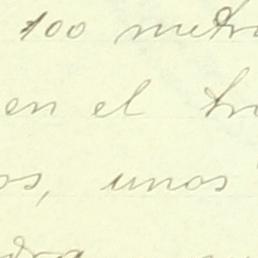 100 metr
en el tr
os, unos
dra